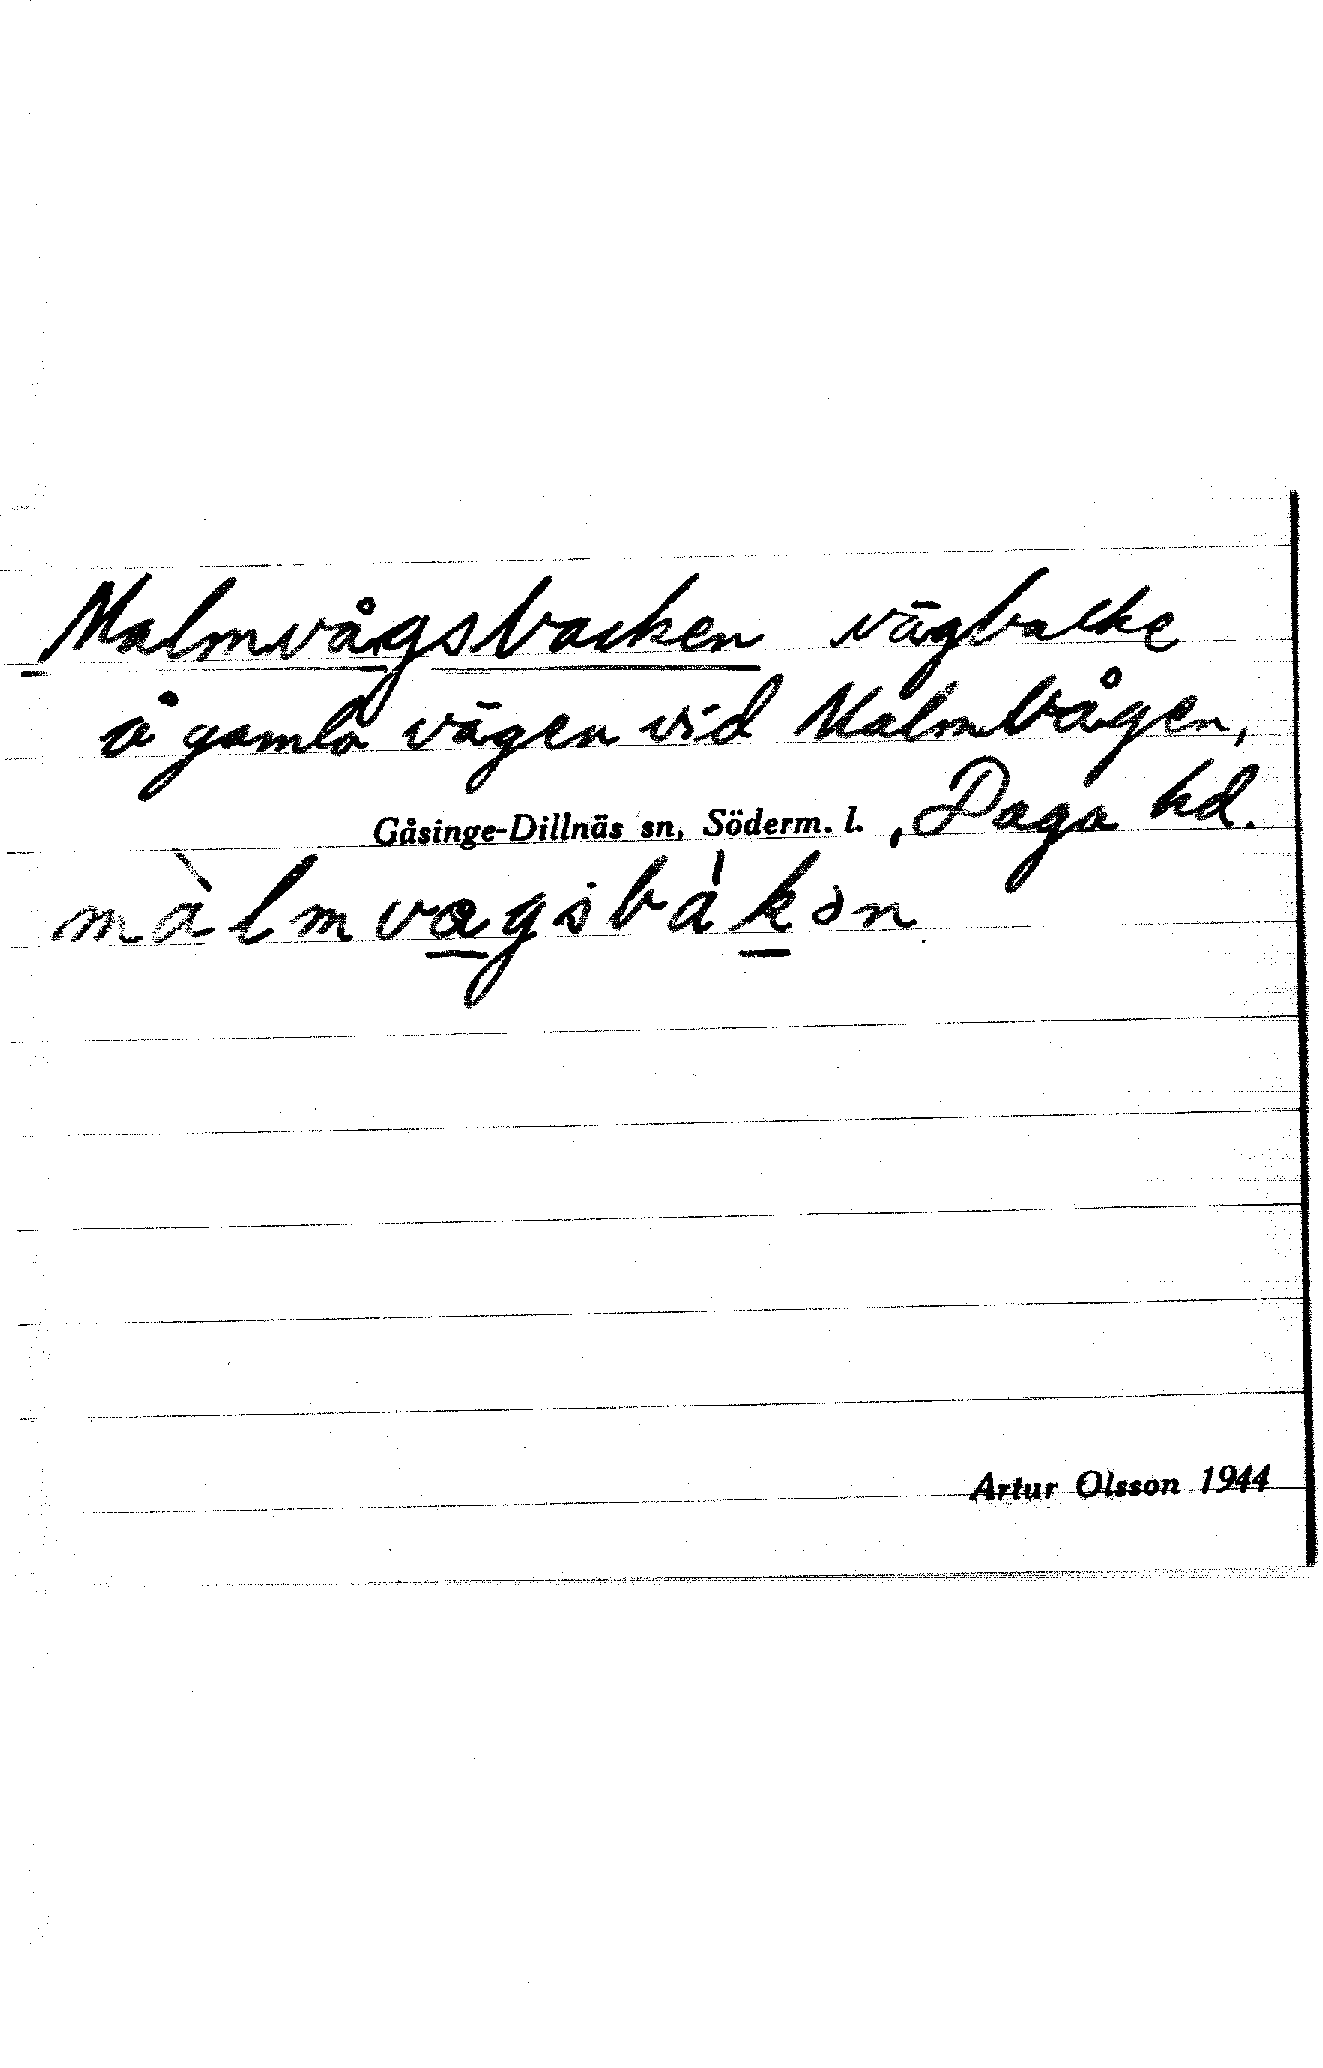 Malmvågsbacken vägbacke
å gamla vägen vid Malmbågen,
Gåsinge-Dillnäs sn, Söderm. l. , Daga hd.
màlmvagsbákən
Artur Olsson 1944